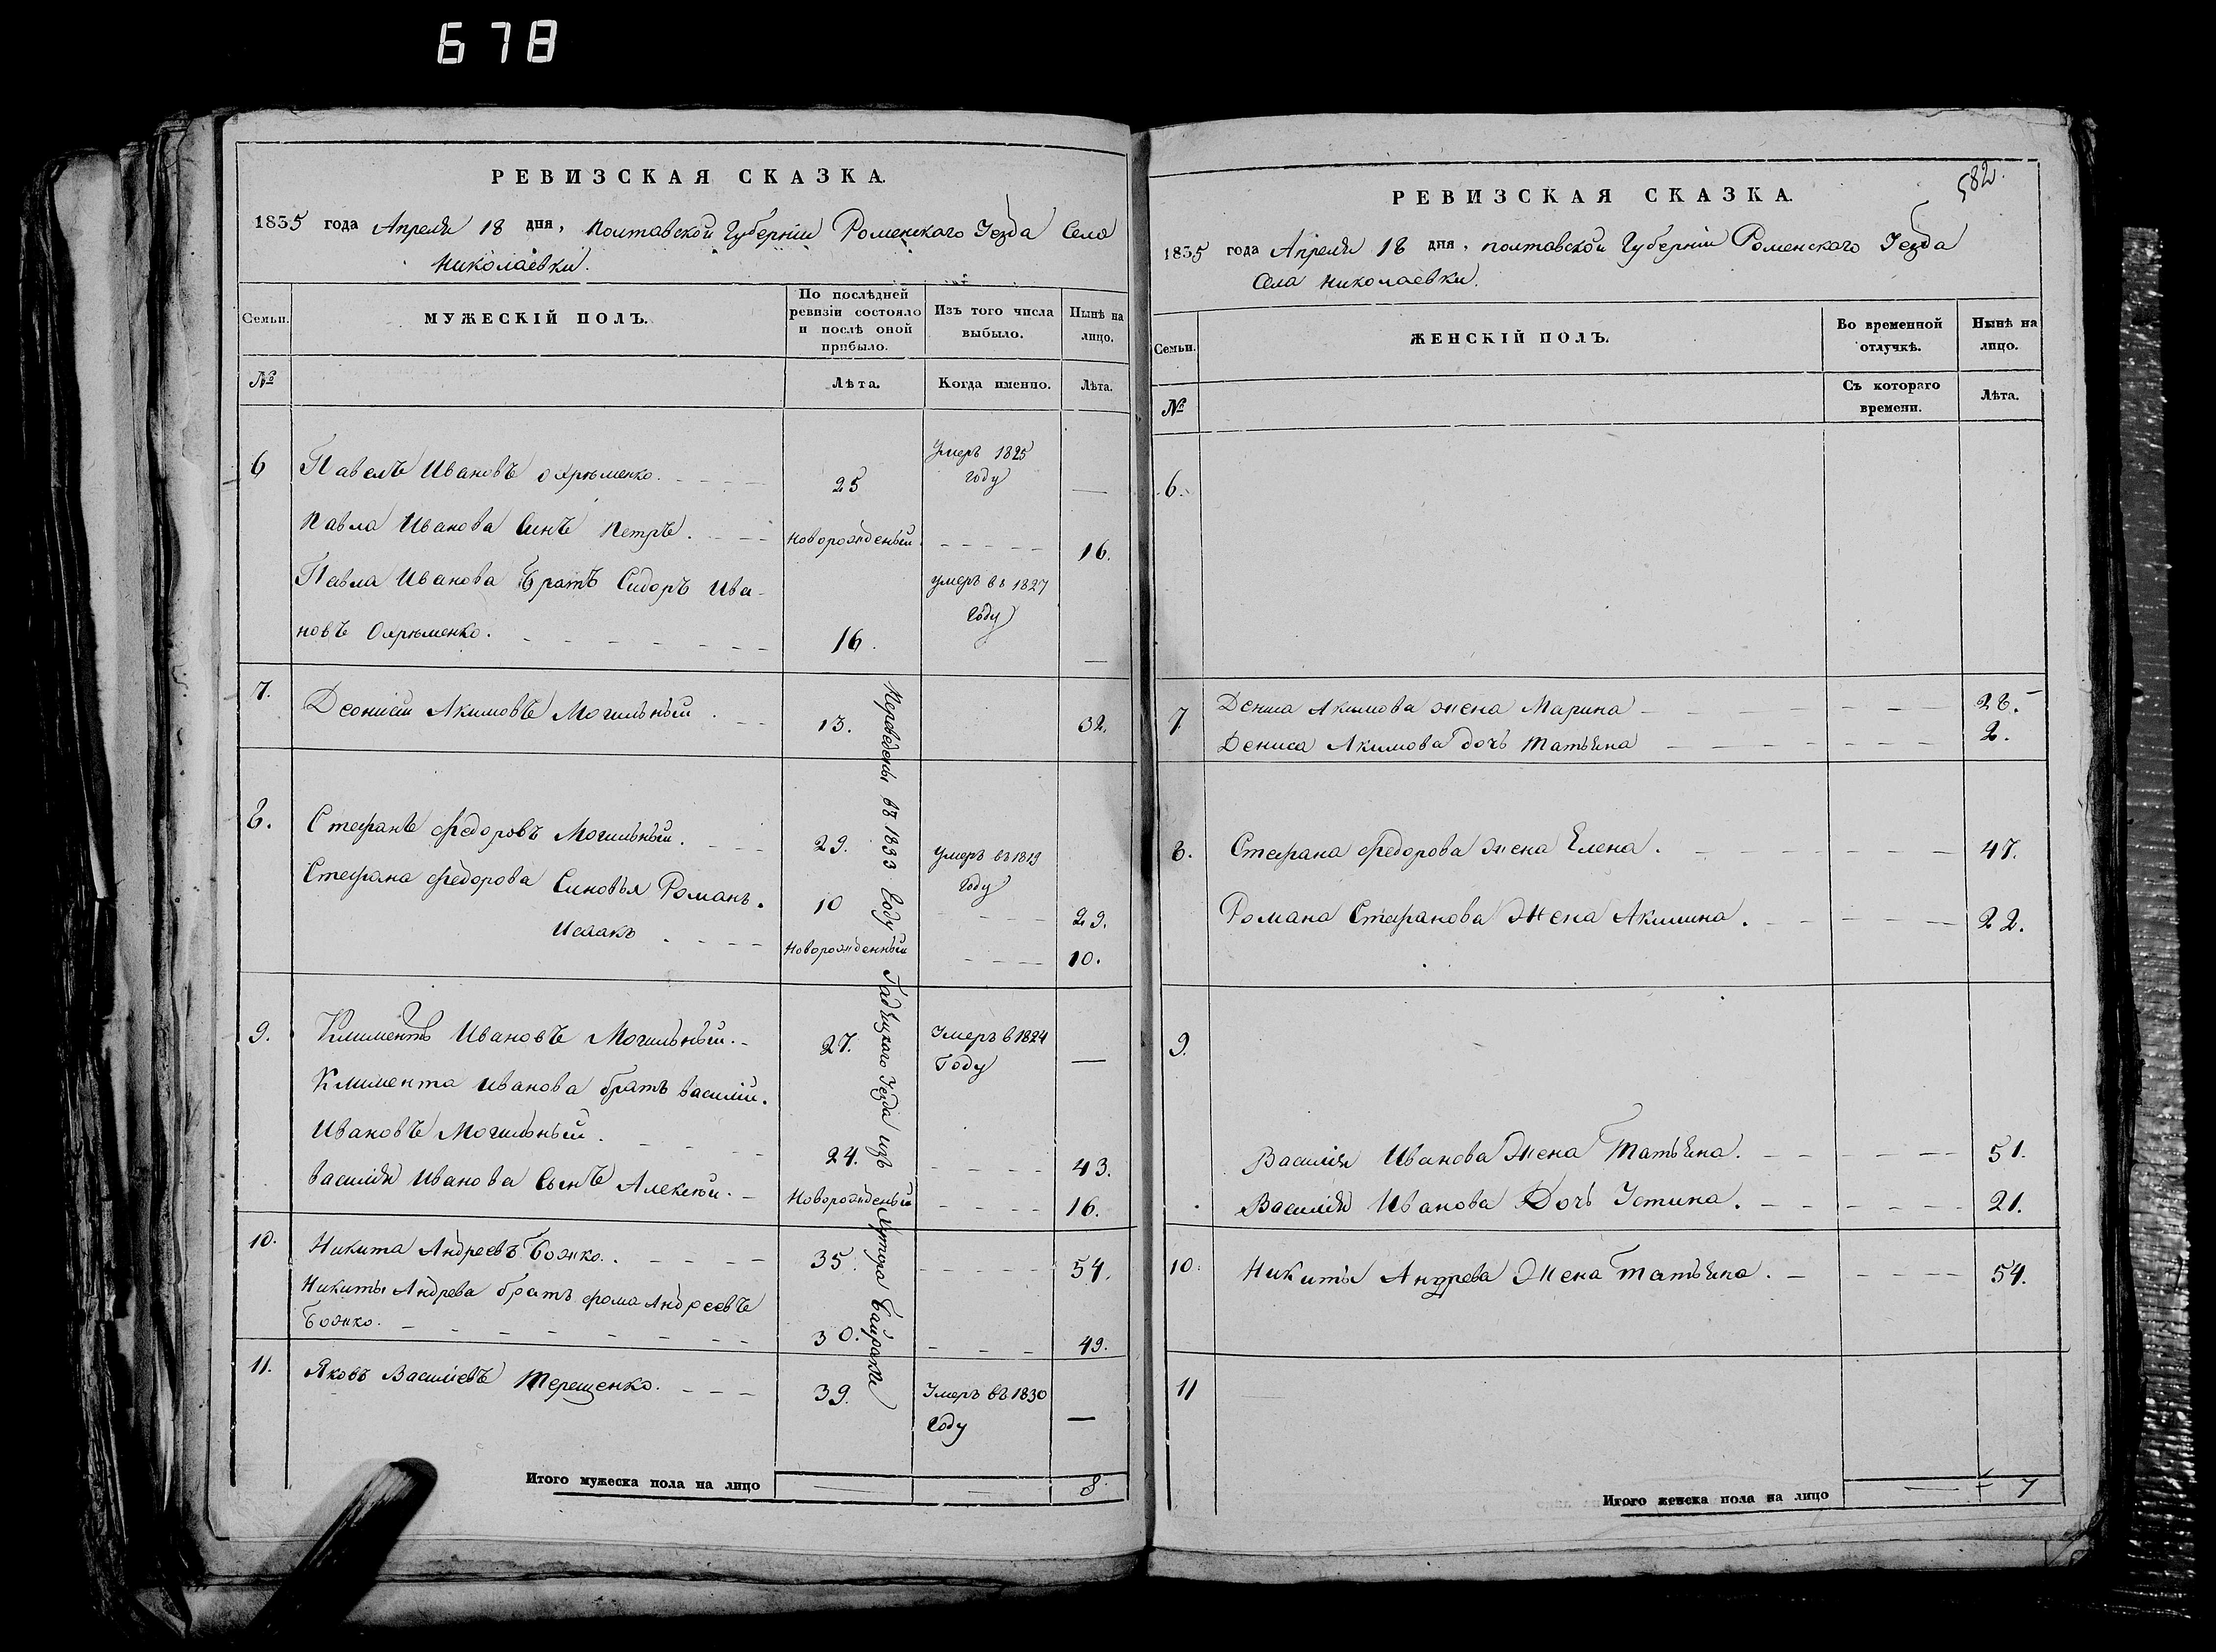 678
РЕВИЗСКАЯ СКАЗКА.
1835 года Апреля 18 дня, Полтавской Губерніи Роменского Уезда Села
Николаевки.
Семьи.
МУЖЕСКІЙ ПОЛЪ.
По послѣдней
ревизіи состояло
и послѣ оной
прибыло.
Изъ того числа
выбыло.
Нынѣ на
лицо.
№
Лѣта.
Когда именно.
Лѣта.
6 Павелъ Ивановъ Охрѣменко. 25 Умеръ 1825
году —
Павла Иванова Синъ Петръ. Новорожденый 16.
Павла Иванова Братъ Сидоръ Ива-
новъ Охрѣменко. 16. умеръ въ 1827
году —
7. Деонисій Акимовъ Могильный. 13. 32.
8. Стефанъ Федоровъ Могильный. 29. Умеръ въ 1819
году
Стефана Федорова Синовья Романъ. 10 29.
Исаакъ Новорожденный 10.
9. Климентъ Ивановъ Могильный. 27. Умеръ в 1824
Году —
Климента Иванова братъ Василій.
Ивановъ Могильный. 24. 43.
Василія Иванова Сынъ Алексѣй. Новорожденый 16.
10. Никита Андреевъ Божко. 35. 54.
Никиты Андрева братъ Фома Андреевъ
Божко. 30. 49.
11. Яковъ Василіевъ Терещенко. 39. Умеръ въ 1830
Году —
Переведены въ 1833 Году Гадяцкого Уезда изъ Хутора Байраки
Итого мужеска пола на лицо — — 8
582.
РЕВИЗСКАЯ СКАЗКА.
1835 года Апреля 18 дня, полтавской Губерніи Роменского Уезда
Села Николаевки.
Семьи.
ЖЕНСКІЙ ПОЛЪ.
Во временной
отлучкѣ.
Нынѣ на
лицо.
№
Съ котораго
времени.
Лѣта.
6.
7 Дениса Акимова жена Марина 28.
Дениса Акимова дочъ Татьяна 2.
8. Стефана Федорова жена Елена. 47.
Романа Стефанова Жена Акилина. 22.
9.
Василія Иванова Жена Татьяна. 51.
Василія Иванова Дочъ Устина. 21.
10. Никиты Андрева Жена Татьяна. 54.
11
Итого женска пола на лицо — 7